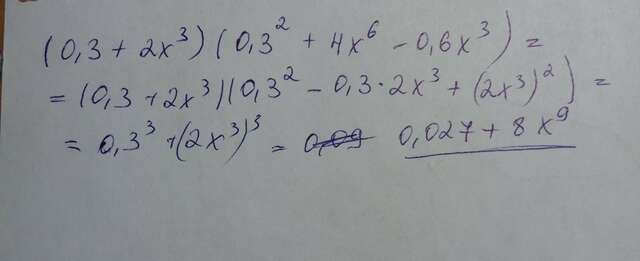 (0,3 + 2x³)(0,3² + 4x⁶ - 0,6x³) =
= (0,3 + 2x³)(0,3² - 0,3·2x³ + (2x³)²) =
= 0,3³ + (2x³)³ = 0,09 0,027 + 8x⁹